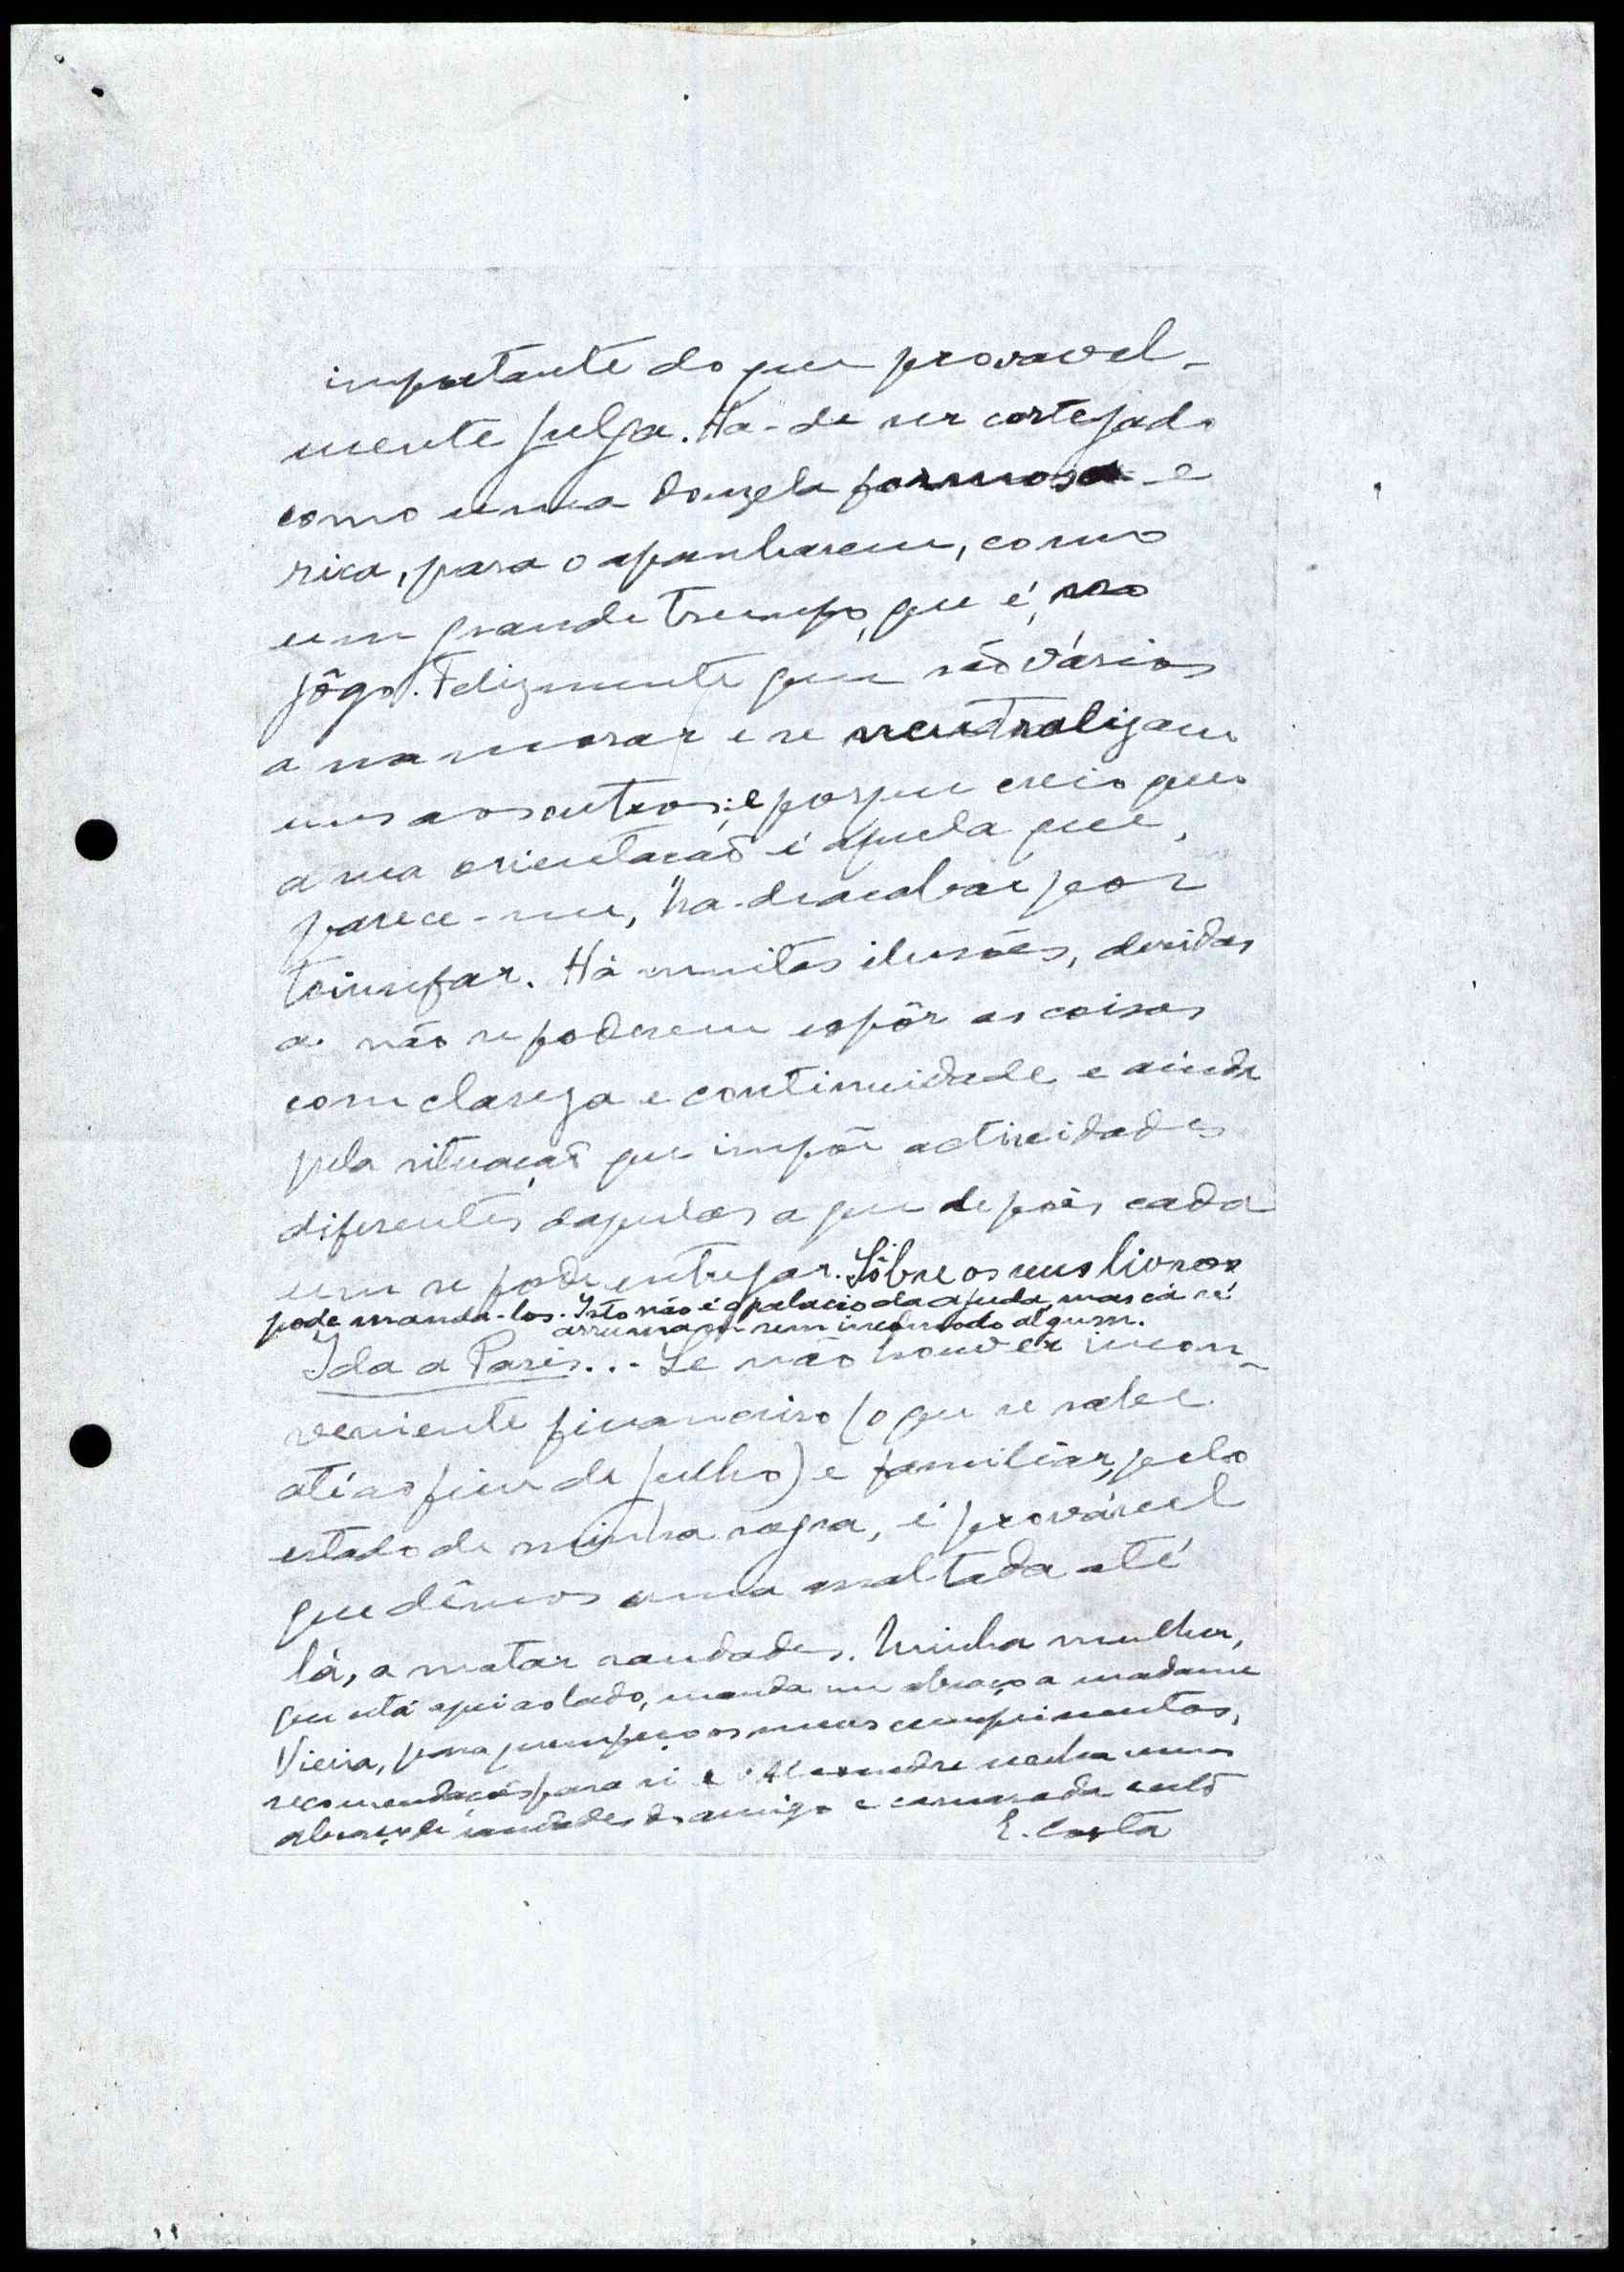 importante do que provavel-
mente julga. Há-de ser cortejado
como uma donzela formosa e
rica, para o apanharem, como
um grande trunfo, que é, no
jôgo. Felizmente que são vários
a namorar e se neutralizam
uns aos outros; e porque creio que
a sua orientação é aquela que,
parece-me, há-de acabar por
triunfar. Há muitas ilusões, devidas
a não se poderem expôr as coisas
com clareza e continuidade e ainda
pela situação que impõe actividades
diferentes daquelas a que depois cada
um se pode entregar. Sôbre os seus livros
pode manda-los. Isto não é o palacio da Ajuda, mas cá se
arrumam sem incómodo algum.
Ida a Paris... Se não houver incon-
veniente financeiro (o que se sabe
até ao fim de julho) e familiar, pelo
estado de minha sogra, é provável
que dêmos uma assaltada até
lá, a matar saudades. Minha mulher,
que está aqui ao lado, manda um abraço a madame
Vieira, para quem peço os meus cumprimentos,
recomendações para si e o Alexandre
abraço de saudades do amigo e camarada
E. Costa